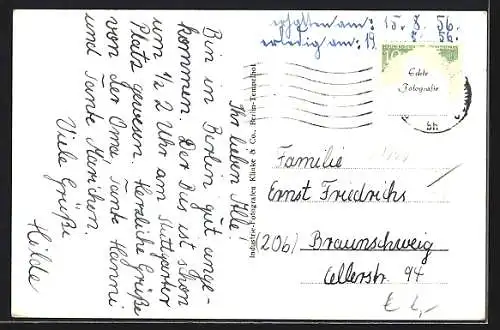 Ihr lieben Alle!
Bin in Berlin gut ange-
kommen. Der Bus ist schon
um ½ 2 Uhr am Stuttgarter
Platz gewesen. Herzliche Grüße
von der Oma Tante Hanni
und Tante Mariechen.
Viele Grüße
Hilde
Industrie-Fotografen Klinke & Co., Berlin-Tempelhof
erhalten am: 15. 8. 56.
am: 19. 8. 56.
Edele
Fotografie
Familie
Ernst Friedrichs
(20b) Braunschweig
Cellerstr. 94